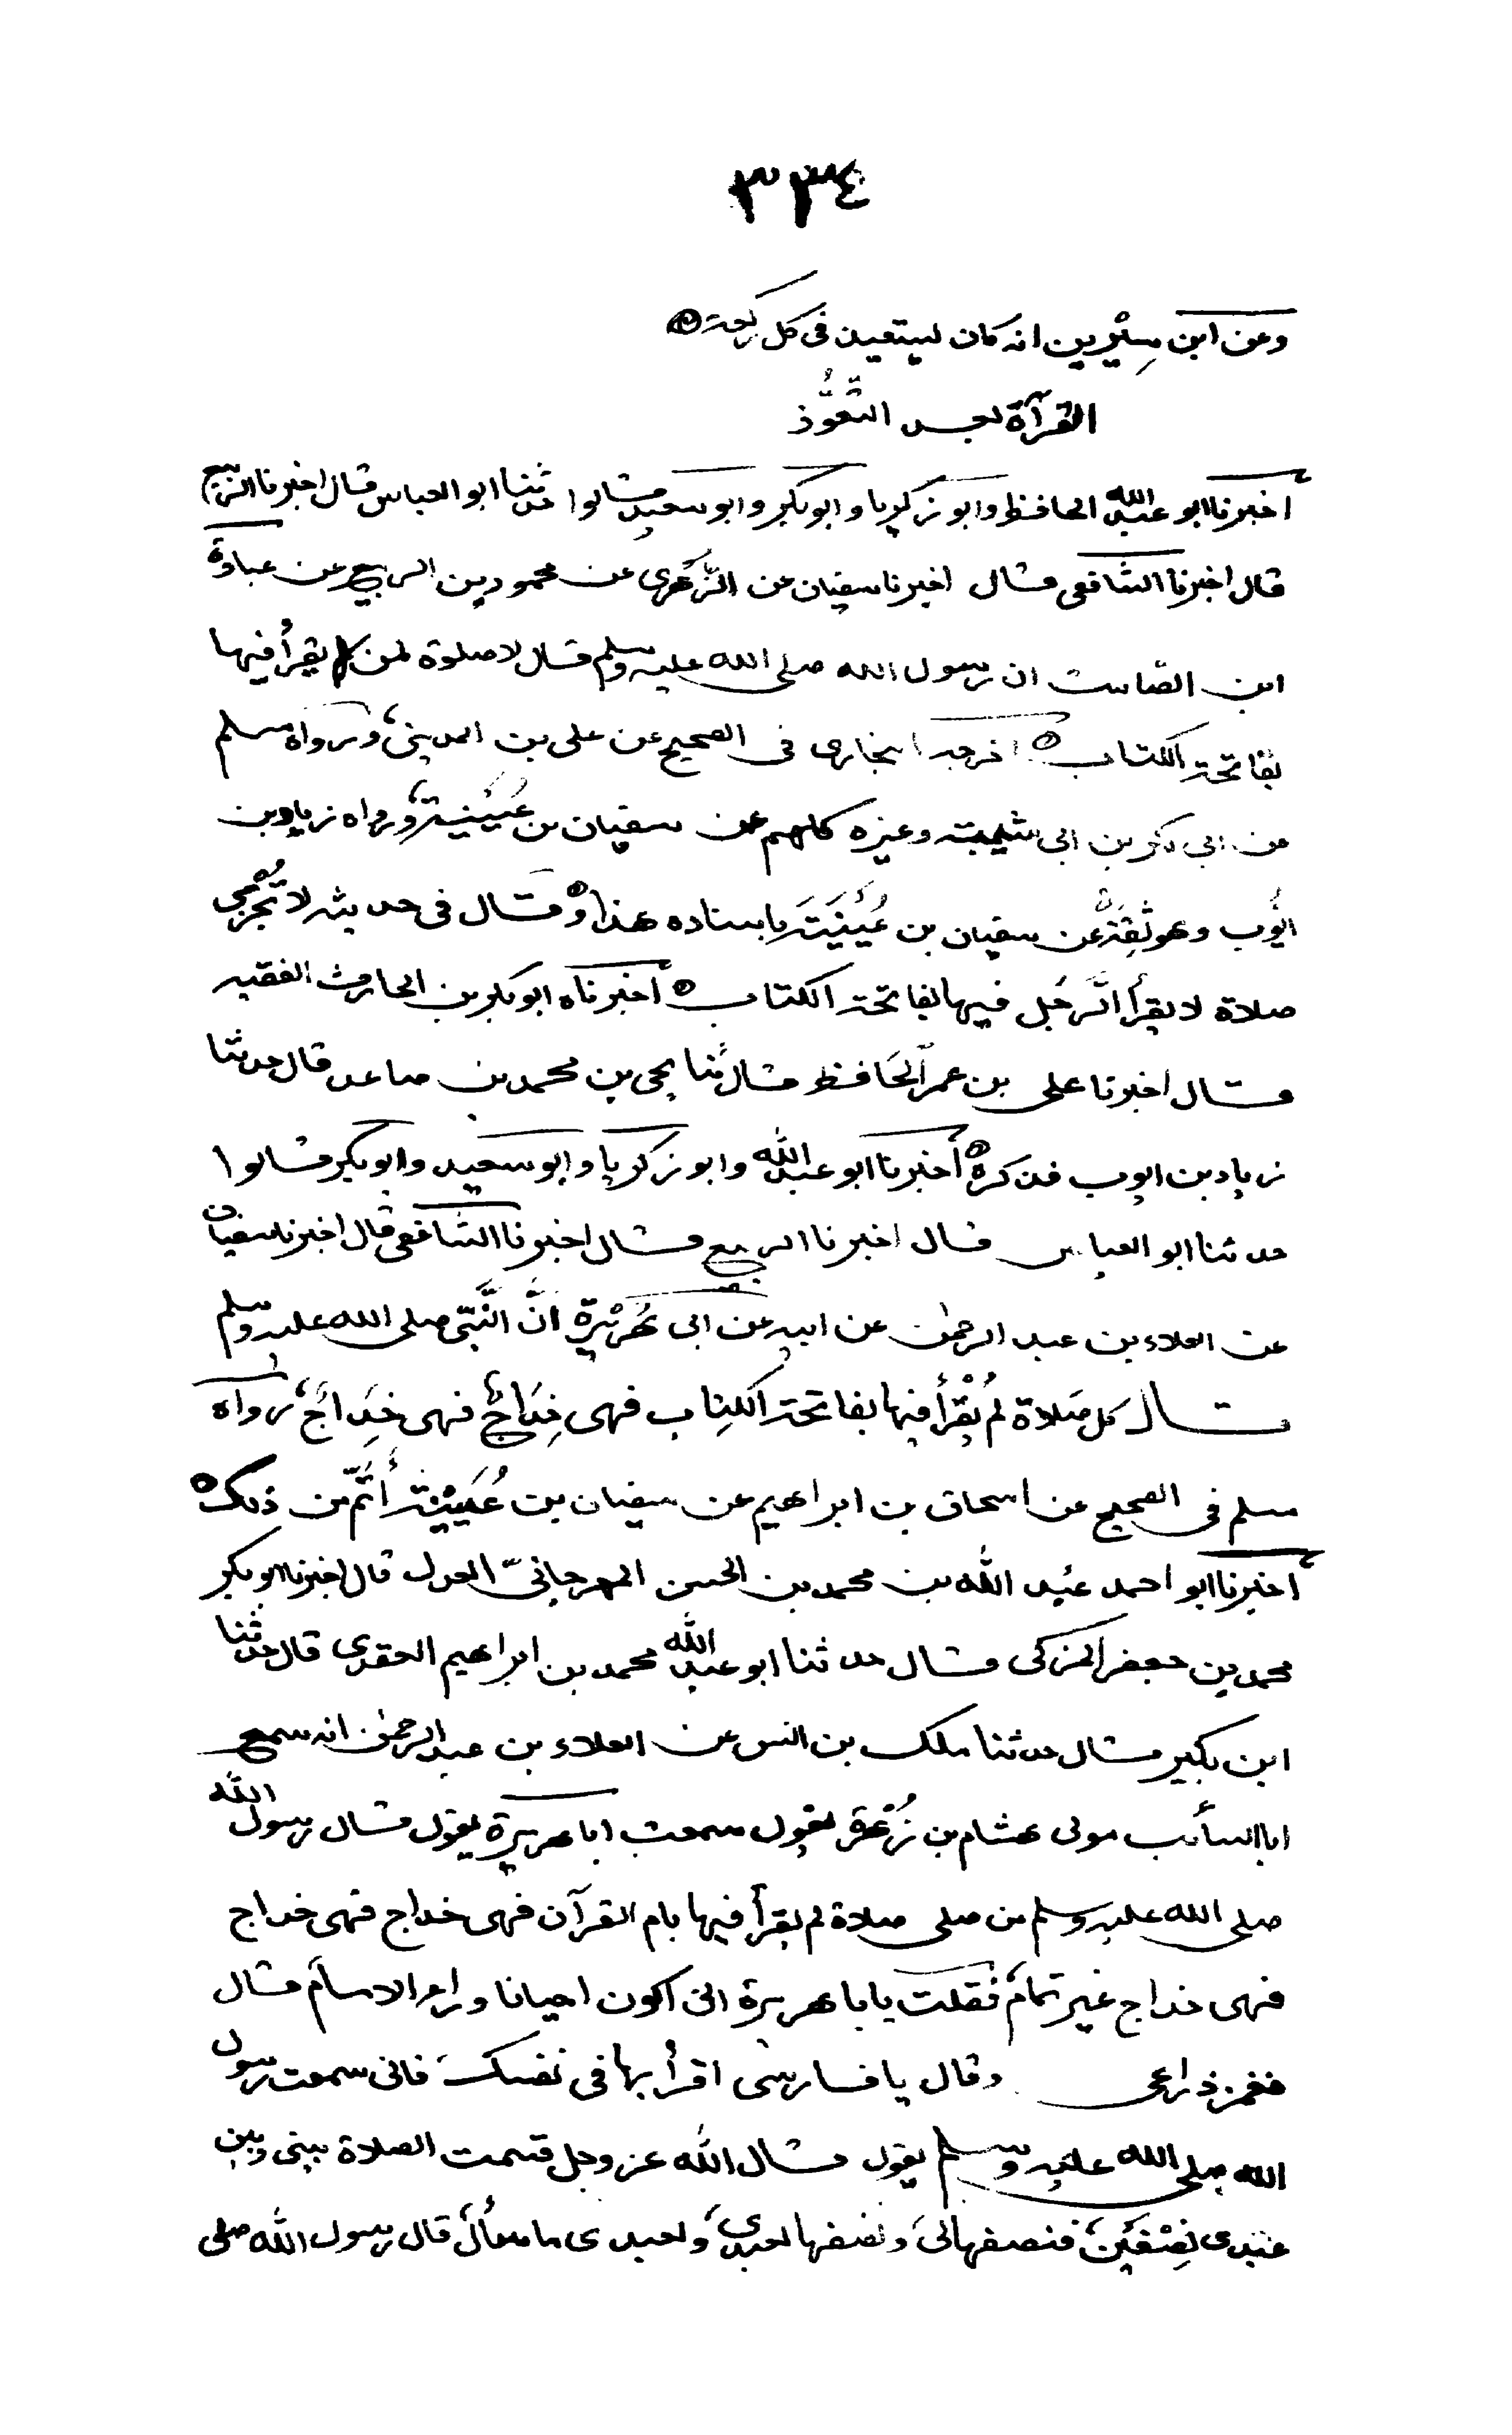 ٣٣٤
وعن ابن سِيْرِين انه كان يستعيذ فى كل ركعة
القرآة بعد التَّعَوُّذ
أخبرنا ابو عبد الله الحافظ وابو زكريا وابو بكر وابو سعيد قالوا حدثنا ابو العباس قال اخبرنا الربيع
قال اخبرنا الشافعى قال اخبرنا سفيان عن الزُّهرى عن محمود بن الربيع عن عبادة
ابن الصّامت ان رسول الله صلى الله عليه وسلم قال لا صلوة لمن لم يقرأ فيها
بفاتحة الكتاب ه اخرجه البخارى فى الصحيح عن على بن المدينى، ورواه مسلم
عن ابى بكر بن ابى شيبة وغيره كلهم عن سفيان بن عُيَيْنة، ورواه زياد بن
ايُّوب وهو ثِقَةٌ عن سفيان بن عُيَيْنَةَ باسناده هذا ه وقال فى حديثه لا تُجْزِى
صلاة لا يقرأ الرَّجُل فيها بفاتحة الكتاب ه أخبرناه ابو بكر بن الحارث الفقيه
قال اخبرنا على بن عمر الحَافظ قال ثنا يحيى بن محمد بن صاعد قال حدثنا
زياد بن ايوب فذكره ه أخبرنا ابو عبد الله وابو زكريا وابو سعيد وابو بكر قالوا
حدثنا ابو العباس قال اخبرنا الربيع قال اخبرنا الشافعى قال اخبرنا سفيان
عن العلاء بن عبد الرحمٰن عن ابيه عن ابى هُرَيْرة انَّ النَّبَّى صلى الله عليه وسلم
قال كل صَلاة لم يُقْرأ فيها بفاتحة الكِتاب فهى خِدَاجٌ فهى خِدَاجٌ، رواه
مسلم فى الصحيح عن اسحاق بن ابراهيم عن سفيان بن عُيَيْنة أتَمَّ من ذلك ه
أخبرنا ابو احمد عبد الله بن محمد بن الحسن المهرجانىّ العدل قال اخبرنا ابو بكر
محمد بن جعفر المزكى قال حدثنا ابو عبد الله محمد بن ابراهيم العبدى قال حدثنا
ابن بكير قال حدثنا ملك بن انس عن العلاء بن عبد الرحمٰن انه سمع
ابا السأىب مولى هشام بن زُهْرة يقول سمعت ابا هريرة يقول قال رسول الله
صلى الله عليه وسلم من صلى صلاة لم يقرأ فيها بام القرآن فهى خداج فهى خداج
فهى خداج غير تمام، فقلت يابا هريرة انى اكون احيانا وراء الامام قال
فغمز ذراعى وقال يا فارسى اقرأ بها فى نفسك فانى سمعت رسول
الله صلى الله عليه وسلم يقول قال الله عز وجل قسمت الصلاة بينى وبين
عبدى نِصْفَيْن، فنصفها لىَ ونصفها لعبدى، ولعبدى ما سأل، قال رسول الله صلى